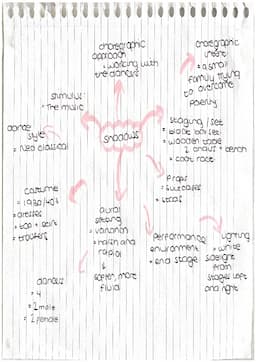 choreographic
approach
= working with
the dancers
choreographic
intent
= a small
family trying
to overcome
poverty
stimulus:
= The music
dance
style
= neo classical
shadows
staging / set
= black box set
= wooden table
2 chairs + bench
= coat rack
props
= suitcases
= coats
costume
= 1930/40s
= dresses
= top + skirt
= trousers
aural
setting
= violin
and
= softer, more
fluid
performance
environment:
= end stage
lighting
= white
sidelight
from
stages left
and right
dancers
= 4
= 2 male
= 2 female